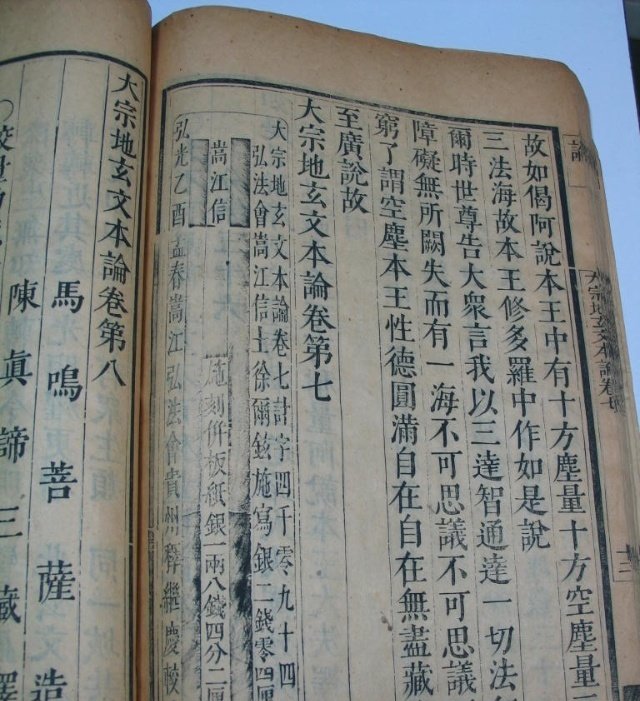 論
大宗地玄文本論卷七
故如偈阿說本王中有十方塵量十方空塵量三
三法海故本王修多羅中作如是說
爾時世尊告大衆言我以三達智通達一切法
障礙無所闕失而有一海不可思議不可思議
窮了謂空塵本王性德圓滿自在自在無盡藏
至廣說故
大宗地玄文本論卷第七
大宗地玄文本論卷七計字四千零九十四
弘法會嵩江信士徐爾鉉施寫銀二錢零四厘
嵩江信
施刻併板紙銀一兩八錢四分二厘
弘光乙酉孟春嵩江弘法會貴州釋繼慶校
大宗地玄文本論卷第八
馬鳴菩薩造
陳眞諦三藏譯